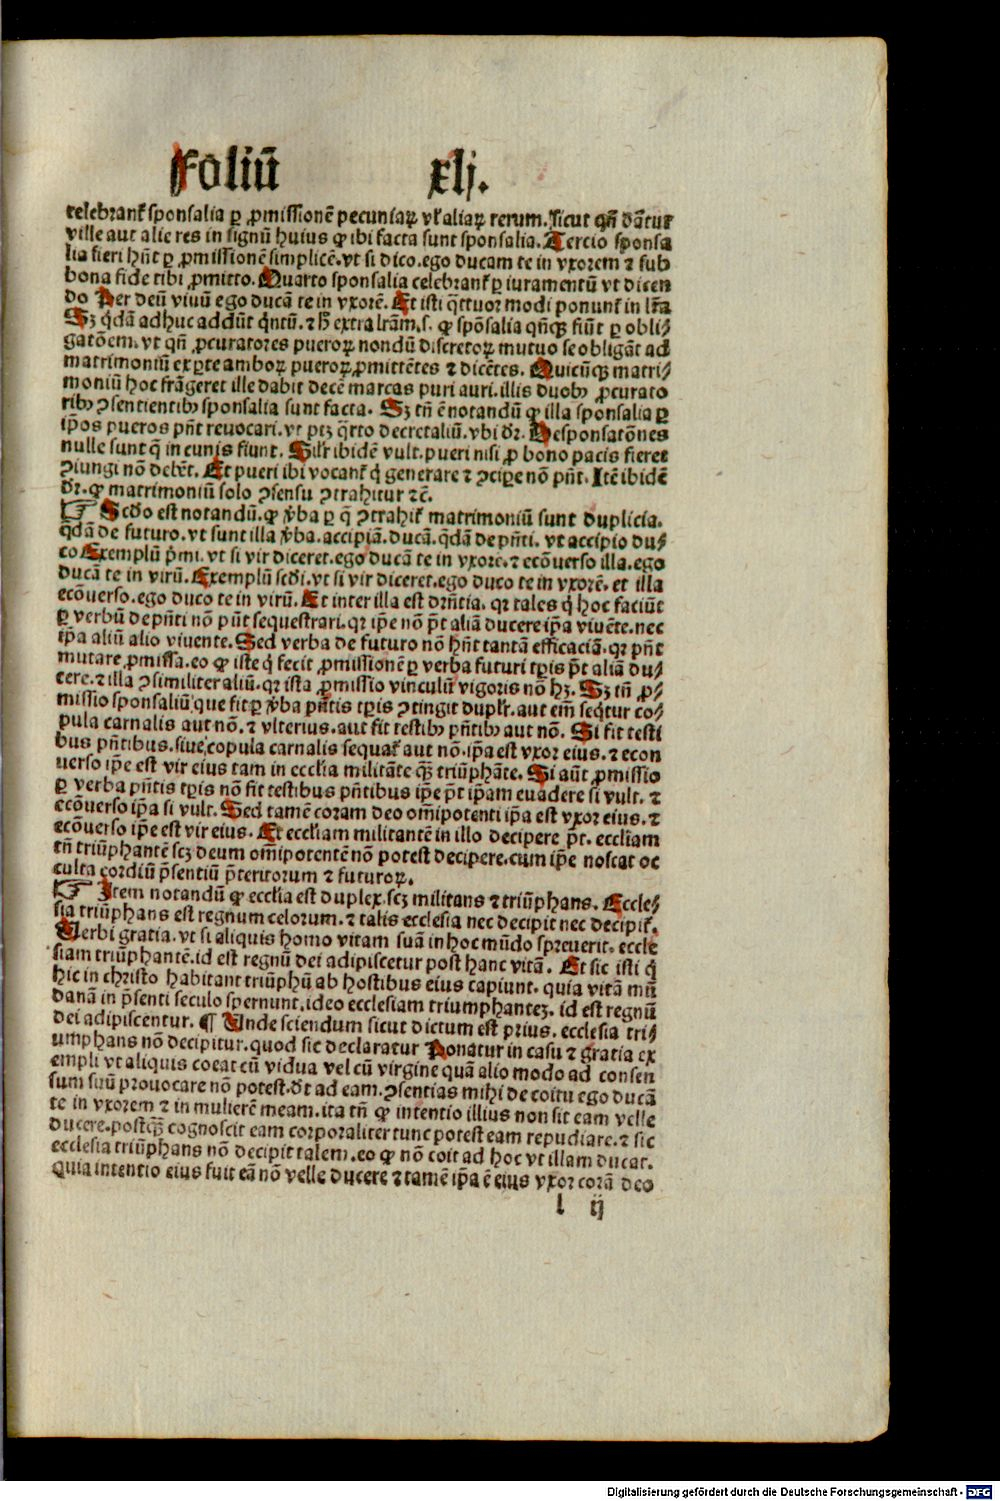 Foliū xlj.
celebrant᷑ sponsalia ꝑ ꝓmissionē pecuniaꝝ vl᷑ aliaꝝ rerum. sicut qn̄ dant᷑ur
ville aut alie res in signū huius ꝙ ibi facta sunt sponsalia. Tercio sponsa
lia fieri hn̄t ꝑ ꝓmissionē simplicē. vt si dico. ego ducam te in vxorem ⁊ sub
bona fide tibi ꝓmitto. Quarto sponsalia celebrant᷑ ꝑ iuramentū vt dicen
do Per deū viuū ego ducā te in vxorē. Et isti q̄ttuor modi ponunt᷑ in lr̄a
Sꝫ q̇dā adhuc addūt q̇ntū. ⁊ hͦ extra lr̄am. s. ꝙ spōsalia qn̄qꝫ fiūt ꝑ obli⸗
gatōem. vt qn̄ ꝓcuratores pueroꝝ nondū discretoꝝ mutuo se obligāt ad
matrimoniū ex ꝑte amboꝝ pueroꝝ ꝓmittētes ⁊ dicētes. Quicūqꝫ matri⸗
moniū hoc frāgeret ille dabit decē marcas puri auri. illis duobꝰ ꝓcurato
ribꝰ ꝯsentientibꝰ sponsalia sunt facta. Sꝫ tn̄ ē notandū ꝙ illa sponsalia ꝑ
ip̄os pueros pn̄t reuocari. vt ptꝫ q̄rto decretaliū. vbi dr̄. Desponsatōnes
nulle sunt q̄ in cunis fiunt. Silr᷑ ibidē vult. pueri nisi ꝓ bono pacis fieret
ꝯiungi nō debēt. Et pueri ibi vocant᷑ q̇ generare ⁊ ꝯciꝑe nō pn̄t. Itē ibidē
dr̄. ꝙ matrimoniū solo ꝯsensu ꝯtrahitur ⁊cē.
☞ Scd̄o est notandū. ꝙ v̓ba ꝑ q̄ ꝯtrahit᷑ matrimoniū sunt duplicia.
q̄dā de futuro. vt sunt illa v̓ba. accipiā. ducā. q̄dā de pn̄ti. vt accipio du⸗
co Exemplū pͥmi. vt si vir diceret. ego ducā te in vxorē. ⁊ ecōuerso illa. ego
ducā te in virū. Exemplū scd̄i. vt si vir diceret. ego duco te in vxorē. et illa
ecōuerso. ego duco te in virū. Et inter illa est drn̄tia. qꝛ tales q̇ hoc faciūt
ꝑ verbū de pn̄ti nō pn̄t sequestrari. qꝛ ip̄e nō pt̄ aliā ducere ip̄a viuēte. nec
ip̄a aliū alio viuente. Sed verba de futuro nō hn̄t tantā efficaciā. qꝛ pn̄t
mutare ꝓmissa. eo ꝙ iste q̇ fecit ꝓmissionē ꝑ verba futuri tꝑis pt̄ aliā du⸗
cere. ⁊ illa ꝯsimiliter aliū. qꝛ ista ꝓmissio vinculū vigoris nō hꝫ. Sꝫ tn̄ ꝓ⸗
missio sponsaliū que fit ꝑ v̓ba pn̄tis tꝑis ꝯtingit duplr᷑. aut em̄ seq̇tur co⸗
pula carnalis aut nō. ⁊ vlterius. aut fit testibꝰ pn̄tibꝰ aut nō. Si fit testi
bus pn̄tibus. siue copula carnalis sequat᷑ aut nō. ip̄a est vxor eius. ⁊ econ
uerso ip̄e est vir eius tam in eccl̄ia militāte qꝫ̄ triūphāte. Si aūt ꝓmissio
ꝑ verba pn̄tis tꝑis nō fit testibus pn̄tibus ip̄e pt̄ ip̄am euadere si vult. ⁊
ecōuerso ip̄a si vult. Sed tamē coram deo om̄ipotenti ip̄a est vxor eius. ⁊
ecōuerso ip̄e est vir eius. Et eccl̄iam militantē in illo decipere pt̄. eccl̄iam
tn̄ triūphantē scꝫ deum om̄ipotentē nō potest decipere. cum ip̄e noscat oc
culta cordiū p̄sentiū p̄teritorum ⁊ futuroꝝ.
☞ Item notandū ꝙ eccl̄ia est duplex. scꝫ militans ⁊ triūphans. Eccle⸗
sia triūphans est regnum celorum. ⁊ talis ecclesia nec decipit nec decipit᷑.
Verbi gratia. vt si aliquis homo vitam suā in hoc mūdo spreuerit. eccle
siam triūphantē. id est regnū dei adipiscetur post hanc vitā. Et sic isti q̇
hic in christo habitant triūphū ab hostibus eius capiunt. quia vitā mū
danā in p̄senti seculo spernunt. ideo ecclesiam triumphantez. id est regnū
dei adipiscentur. ¶ Unde sciendum sicut dictum est prius. ecclesia tri⸗
umphans nō decipitur. quod sic declaratur Ponatur in casu ⁊ gratia ex
empli vt aliquis coeat cū vidua vel cū virgine quā alio modo ad consen
sum suū prouocare nō potest. dr̄t ad eam. ꝯsentias mihi de coitu ego ducā
te in vxorem ⁊ in mulierē meam. ita tn̄ ꝙ intentio illius non sit eam velle
ducere. postqꝫ̄ cognoscit eam corporaliter tunc potest eam repudiare. ⁊ sic
ecclesia triūphans nō decipit talem. eo ꝙ nō coit ad hoc vt illam ducat.
quia intentio eius fuit eā nō velle ducere ⁊ tamē ip̄a ē eius vxor corā deo
l ij
Digitalisierung gefördert durch die Deutsche Forschungsgemeinschaft - DFG